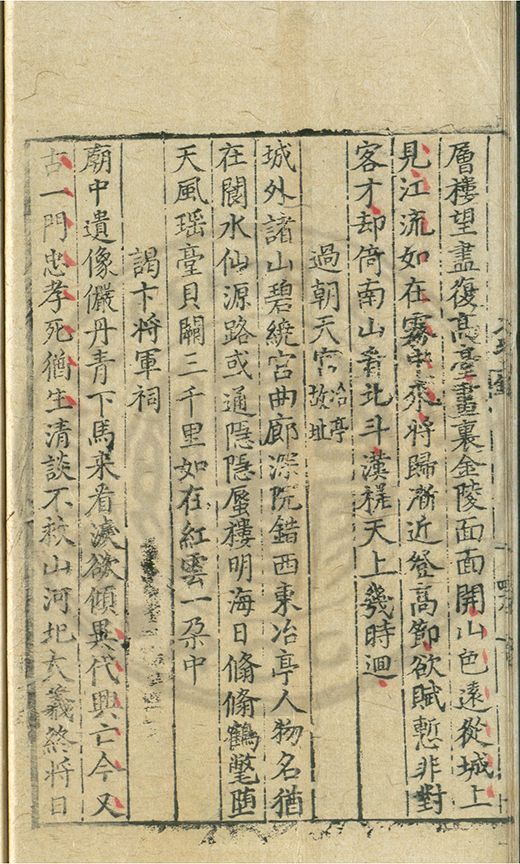 層樓望盡復高臺畫裏金陵面面開山色遠從城上
見江流如在霧中來將歸漸近登高節欲賦慙非對
客才却倚南山看北斗漢槎天上幾時迴
過朝天宮冶亭故址
城外諸山碧繞宮曲廊深院錯西東冶亭人物名猶
在閬水仙源路或通隱隱蜃樓明海日翛翛鶴氅墮
天風瑶臺貝闕三千里如在紅雲一朶中
謁卞將軍祠
廟中遺像儼丹青下馬來看淚欲傾異代興亡今又
古一門忠孝死猶生清談不救山河圯大義終將日